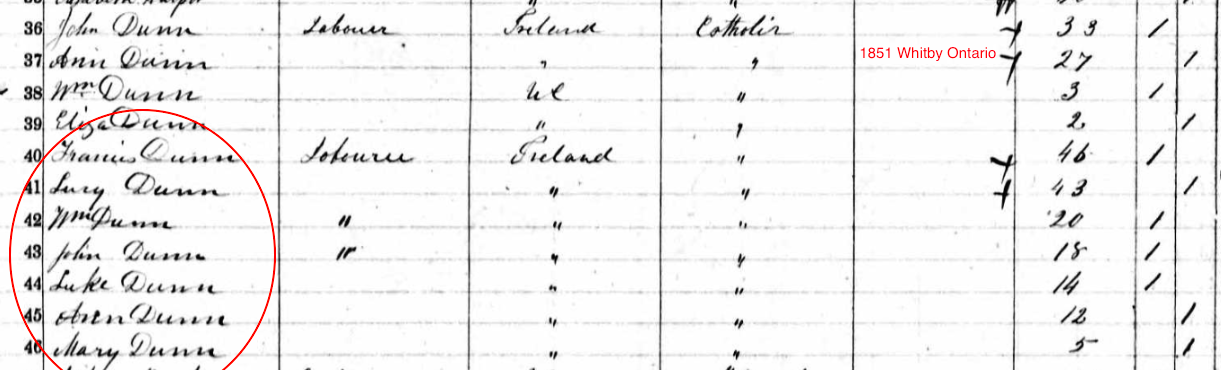 36 John Dunn Labourer Ireland Catholic 33 1
1851 Whitby Ontario
37 Ann Dunn " " 27 1
38 Wm Dunn UC " 3 1
39 Eliza Dunn " " 2 1
40 Francis Dunn Labourer Ireland " 46 1
41 Lucy Dunn " " 43 1
42 Wm Dunn " " " 20 1
43 John Dunn " " " 18 1
44 Luke Dunn " " 14 1
45 Ann Dunn " " 12 1
46 Mary Dunn " " 5 1